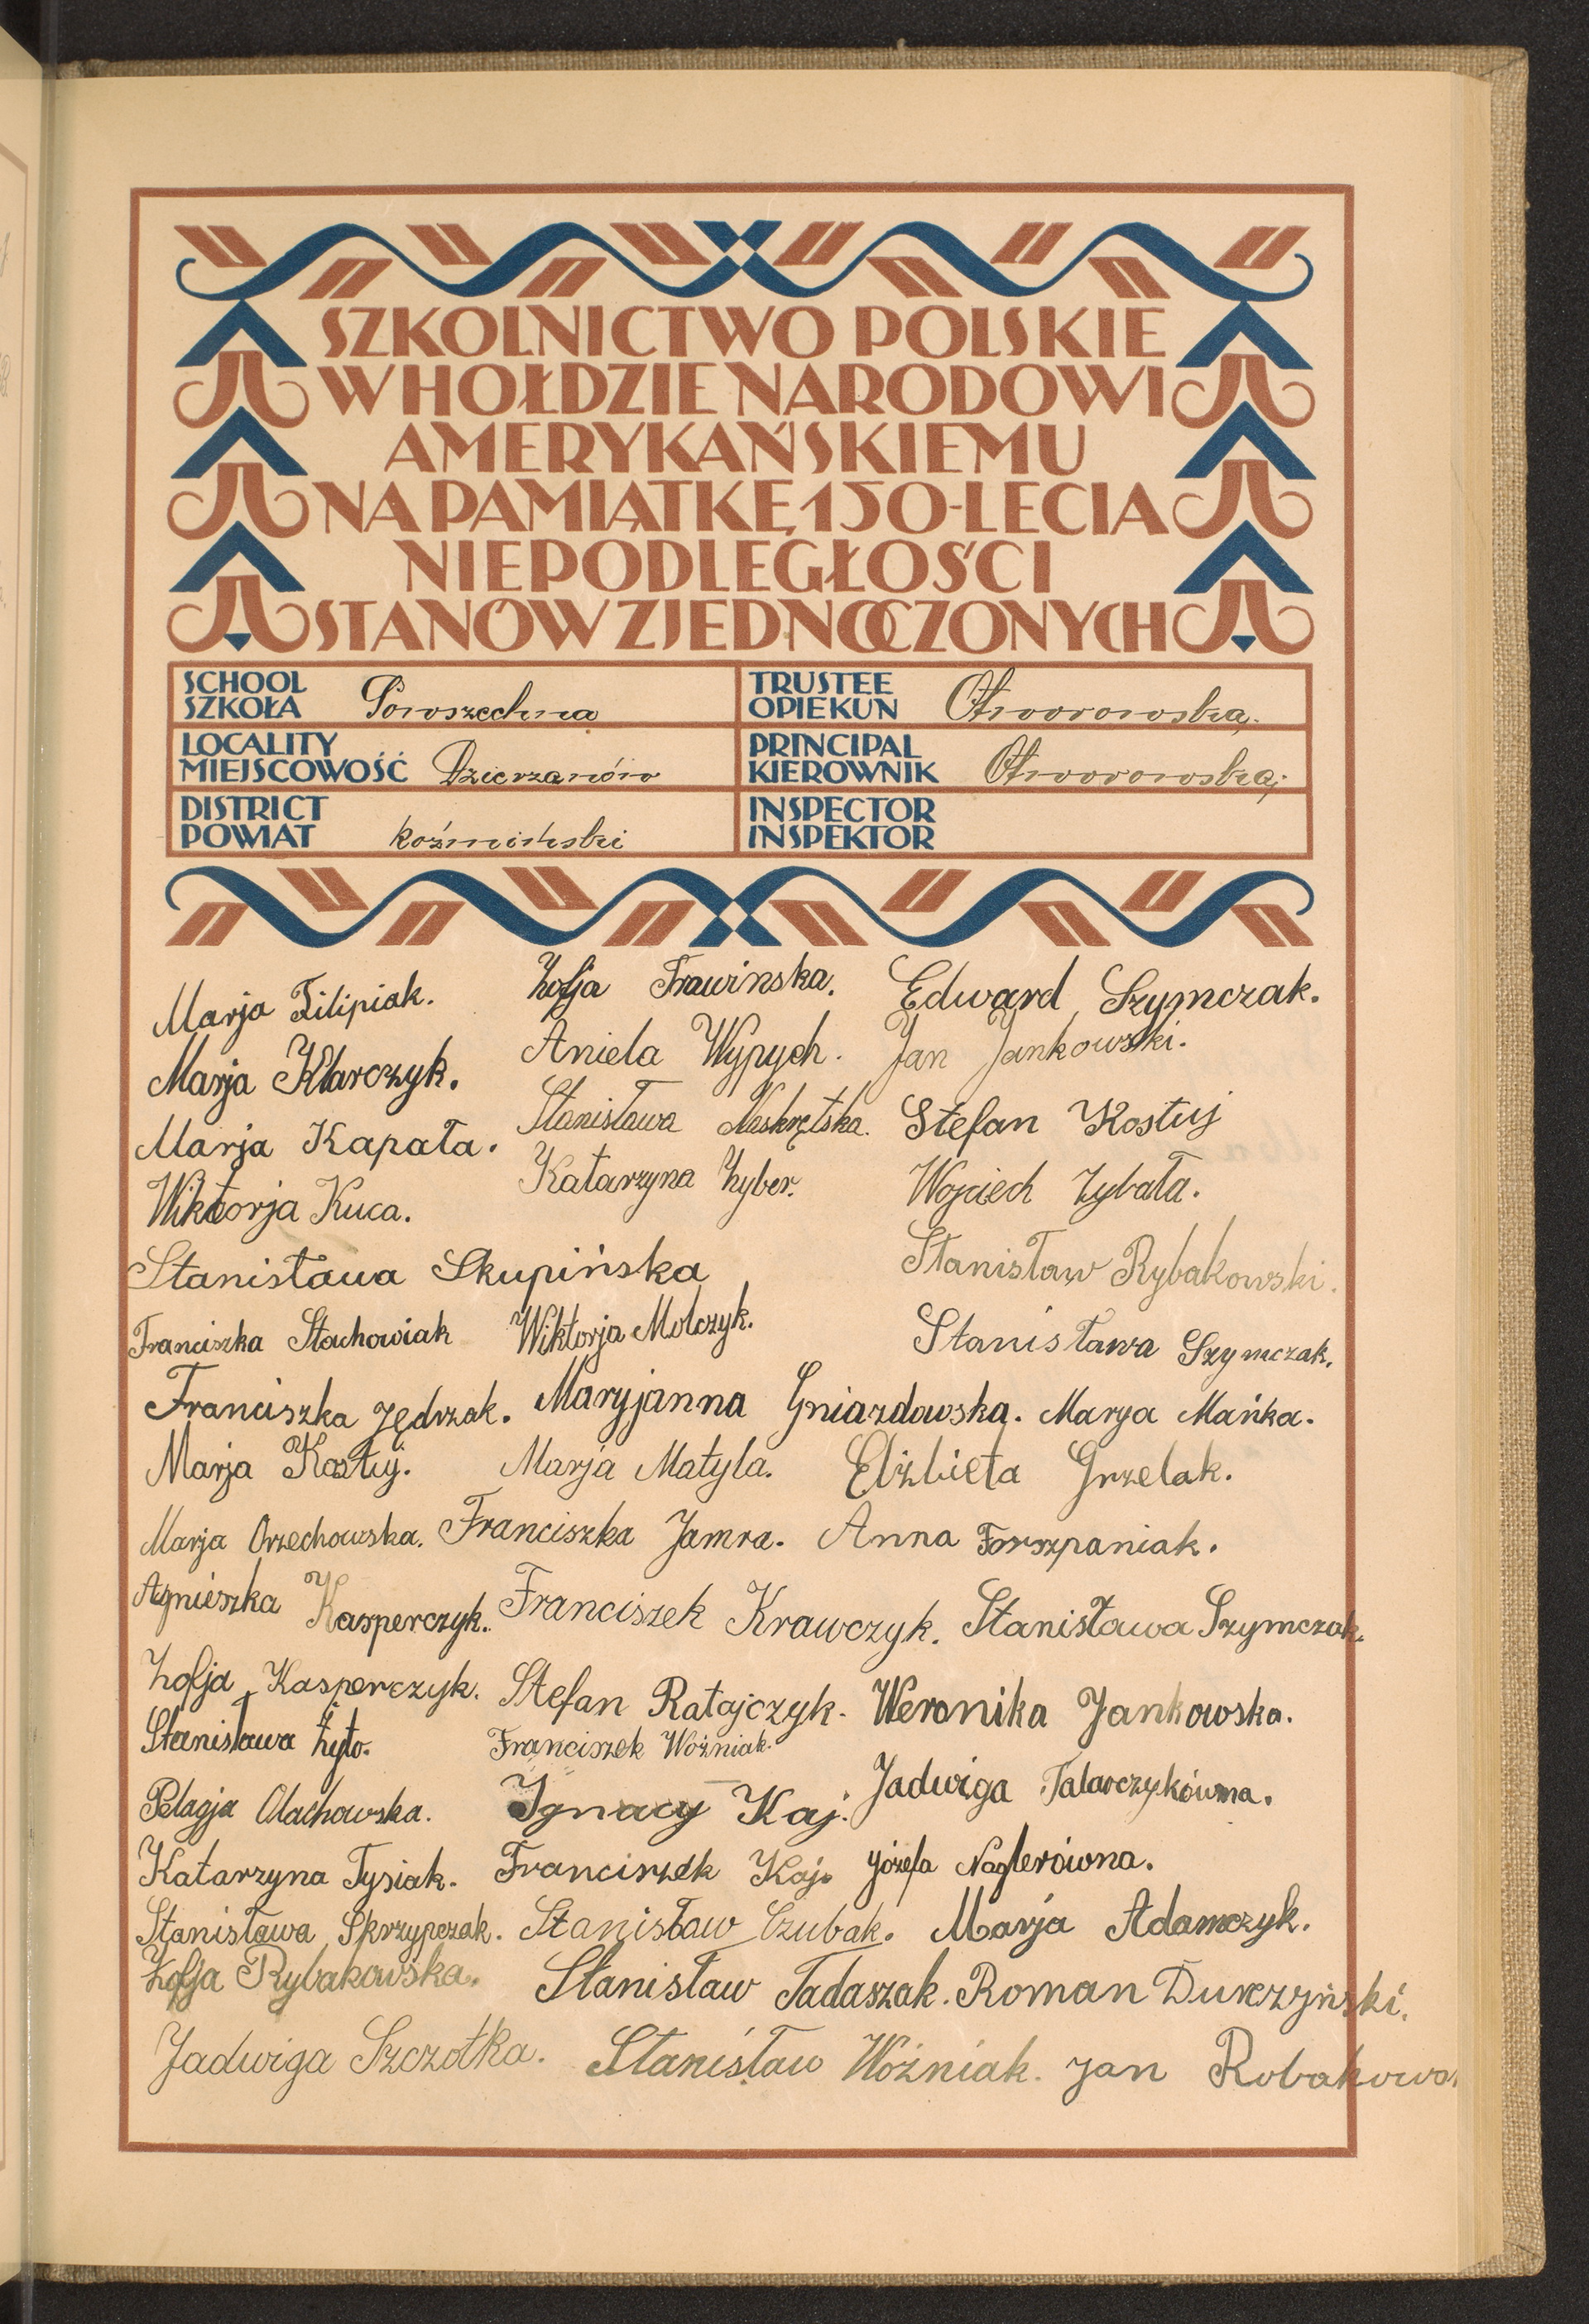 SZKOLNICTWO POLSKIE
W HOŁDZIE NARODOWI
AMERYKAŃSKIEMU
NA PAMIĄTKĘ 150-LECIA
NIEPODLEGŁOŚCI
STANÓW ZJEDNOCZONYCH
SCHOOL
SZKOŁA Powszechna
TRUSTEE
OPIEKUN
LOCALITY
MIEJSCOWOŚĆ Dzierzanów
PRINCIPAL
KIEROWNIK
DISTRICT
POWIAT koźmiński
INSPECTOR
INSPEKTOR
Marja Filipiak. Zofja Frawinska. Edward Szymczak.
Marja Klarczyk. Aniela Wypych. Jan Jankowski.
Marja Kapała. Stanisława Naskrętska. Stefan Kostuj
Wiktorja Kuca. Katarzyna Zyber. Wojciech Zybała.
Stanisława Skupińska Stanisław Rybakowski.
Franciszka Stachowiak Wiktorja Molczyk. Stanisława Szymczak.
Franciszka Jędrzak. Maryjanna Gniazdowska. Marya Mańka.
Marja Kostuj. Marja Matyla. Elżbieta Grzelak.
Marja Orzechowska. Franciszka Jamra. Anna Forszpaniak.
Agnieszka Kasperczyk. Franciszek Krawczyk. Stanisława Szymczak.
Zofja Kasperczyk. Stefan Ratajczyk. Weronika Jankowska.
Stanisława Żyto. Franciszek Woźniak.
Pelagja Olachowska. Ignacy Kaj. Jadwiga Talarczykówna.
Katarzyna Tysiak. Franciszek Kaj. Józefa Naglerówna.
Stanisława Skrzypczak. Stanisław Czubak. Marja Adamczyk.
Zofja Rybakowska. Stanisław Tadaszak. Roman Durczyński.
Jadwiga Szczotka. Stanisław Woźniak. Jan